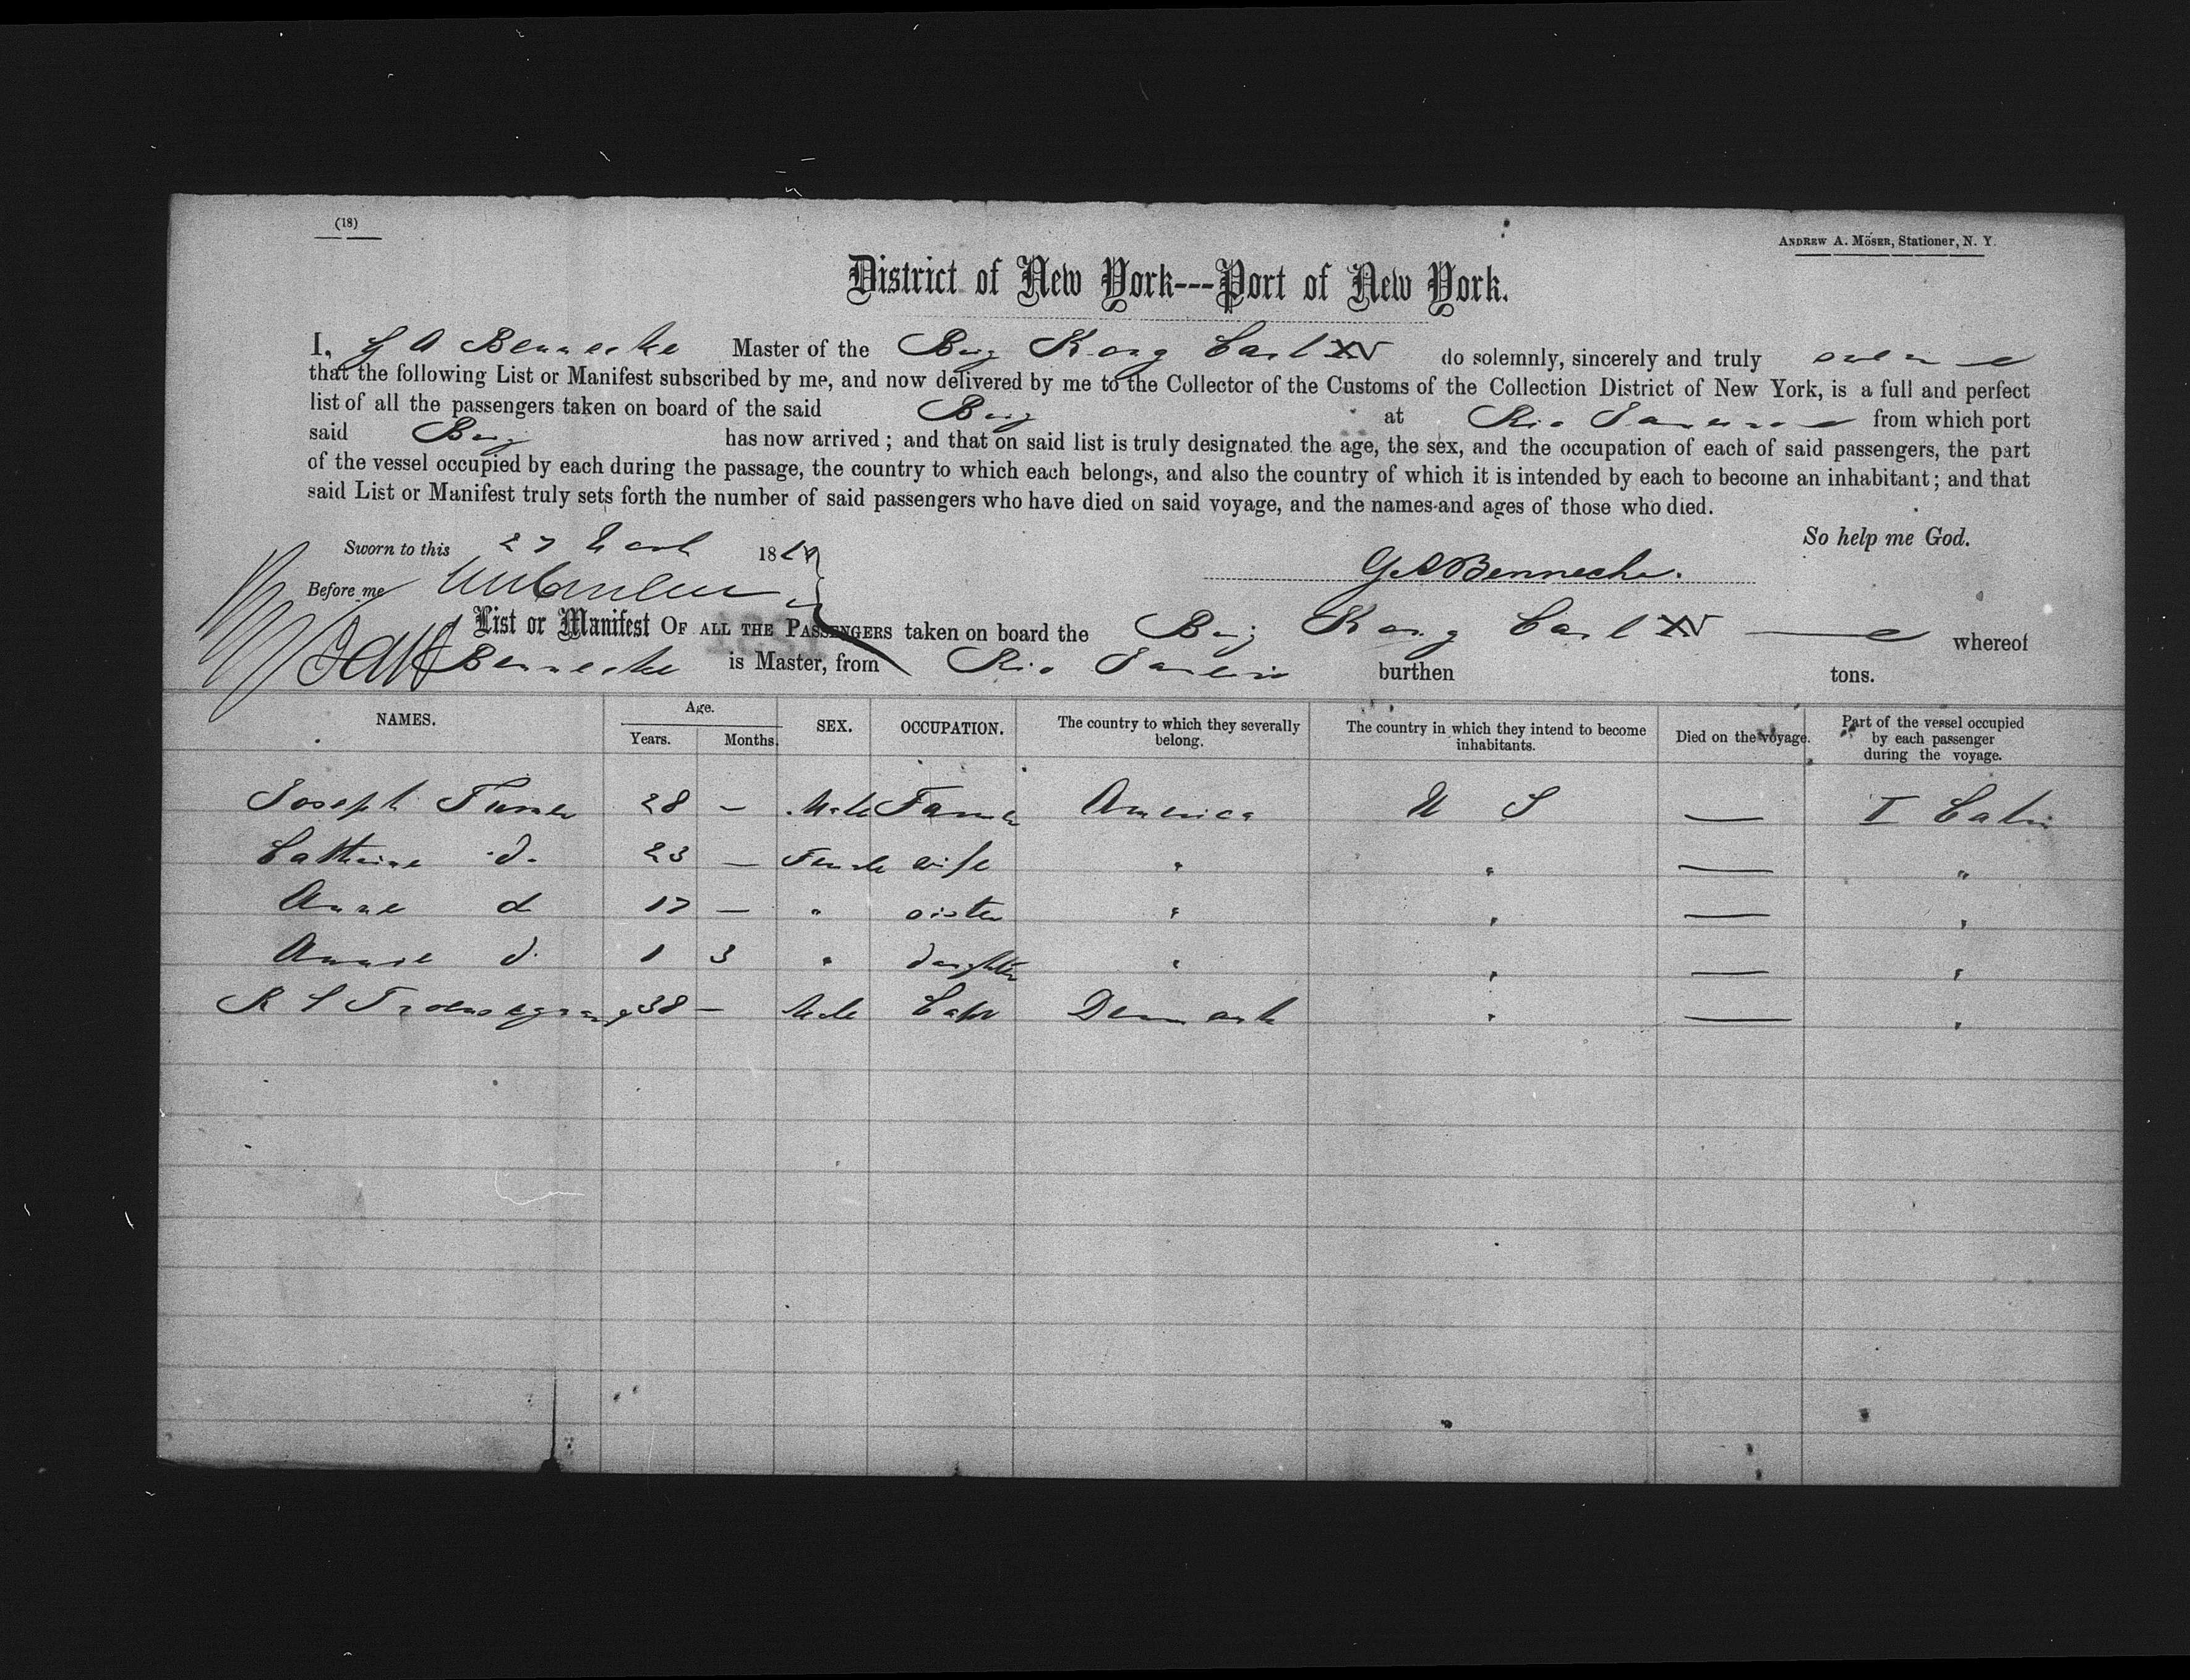 (18)
ANDREW A. MÖSER, Stationer, N. Y.
District of New York---Port of New York.
I, G A Bennecke Master of the Brig Kong Carl XV do solemnly, sincerely and truly swear
that the following List or Manifest subscribed by me, and now delivered by me to the Collector of the Customs of the Collection District of New York, is a full and perfect
list of all the passengers taken on board of the said Brig at Rio Janeiro from which port
said Brig has now arrived; and that on said list is truly designated the age, the sex, and the occupation of each of said passengers, the part
of the vessel occupied by each during the passage, the country to which each belongs, and also the country of which it is intended by each to become an inhabitant; and that
said List or Manifest truly sets forth the number of said passengers who have died on said voyage, and the names and ages of those who died.
So help me God.
Sworn to this 27 March 1869
G A Bennecke.
Before me
List or Manifest OF ALL THE PASSENGERS taken on board the Brig Kong Carl XV whereof
Bennecke is Master, from Rio Janeiro burthen tons.
NAMES. Age. Years. Months. SEX. OCCUPATION. The country to which they severally belong. The country in which they intend to become inhabitants. Died on the voyage. Part of the vessel occupied by each passenger during the voyage.
Joseph Turner 28 — Male Farmer America U S — I Cabin
Catherine d. 23 — Female wife " " — "
Anne d 17 — " sister " " — "
Annie d. 1 3 " daughter " " — "
R S 38 — Male Capt Denmark " — "